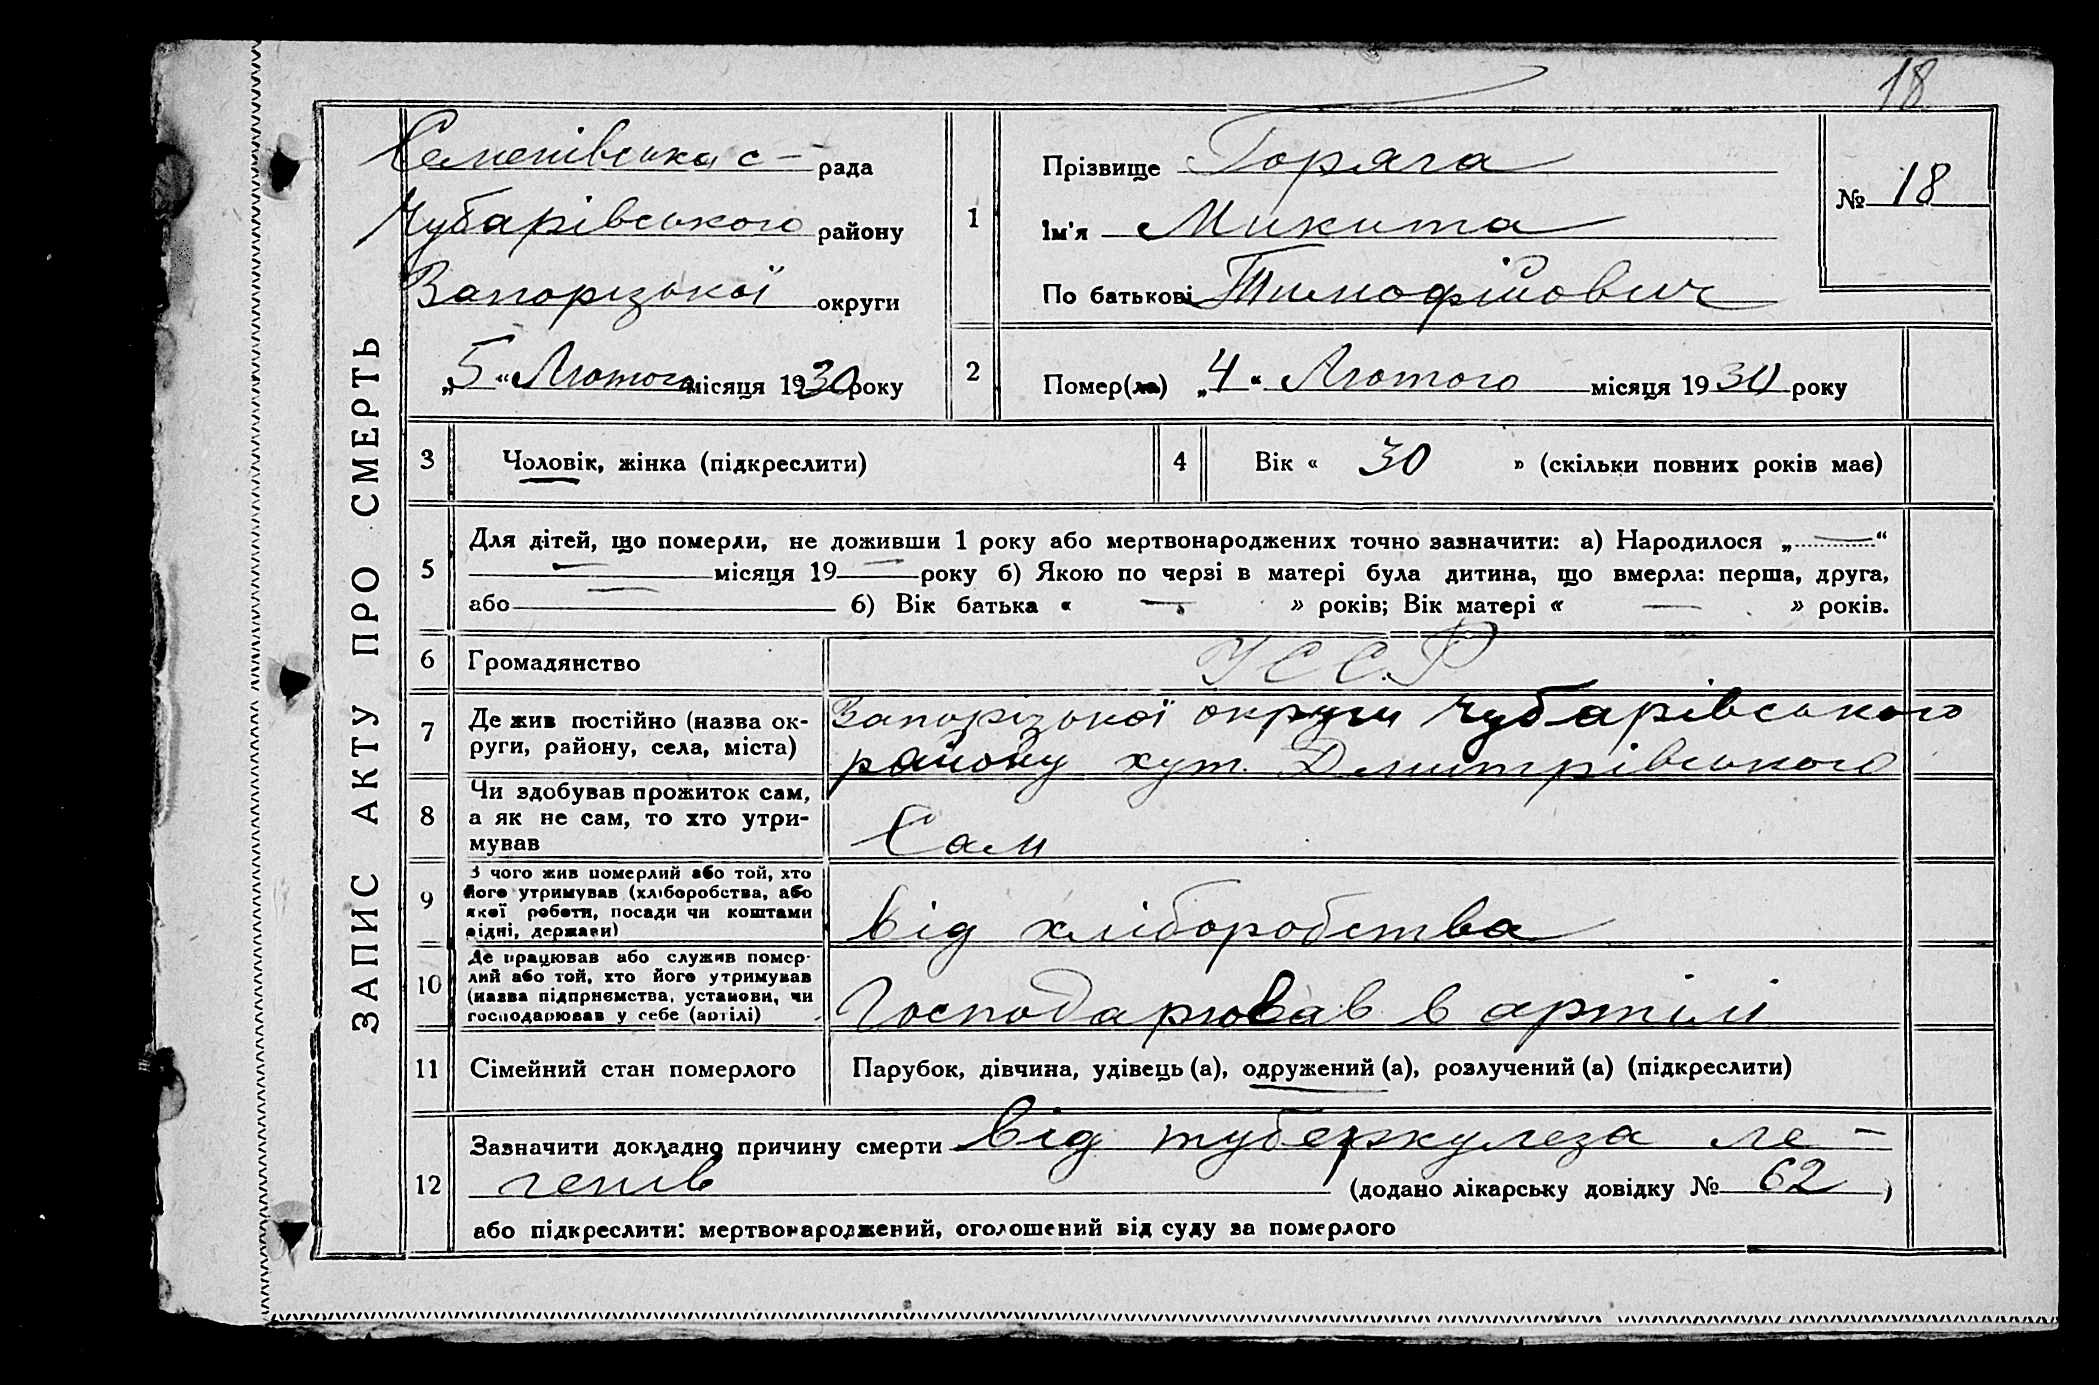 18
ЗАПИС АКТУ ПРО СМЕРТЬ
Семенівська с – рада
Чубарівського району
Запорізької округи
„5“ Лютого місяця 1930 року
1
Прізвище Горяга
Ім'я Микита
По батькові Тимофійович
№ 18
2
Помер(ла) „4“ Лютого місяця 1930 року
3
Чоловік, жінка (підкреслити)
4
Вік « 30 » (скільки повних років має)
5
Для дітей, що померли, не доживши 1 року або мертвонароджених точно зазначити: а) Народилося „ — “
— місяця 19 — року б) Якою по черзі в матері була дитина, що вмерла: перша, друга,
або — б) Вік батька « — » років; Вік матері « — » років.
6
Громадянство
УССР
7
Де жив постійно (назва ок-
руги, району, села, міста)
Запорізької округи Чубарівського
району хут. Дмитрівського
8
Чи здобував прожиток сам,
а як не сам, то хто утри-
мував
Сам
9
З чого жив померлий або той, хто
його утримував (хліборобства, або
якої роботи, посади чи коштами
рідні, держави)
Від хліборобства
10
Де працював або служив помер-
лий або той, хто його утримував
(назва підприємства, установи, чи
господарював у себе (артілі)
Господарював в артілі
11
Сімейний стан померлого
Парубок, дівчина, удівець (а), одружений (а), розлучений (а) (підкреслити)
12
Зазначити докладно причину смерти Від туберкулеза ле –
генів (додано лікарську довідку № 62 )
або підкреслити: мертвонароджений, оголошений від суду за померлого